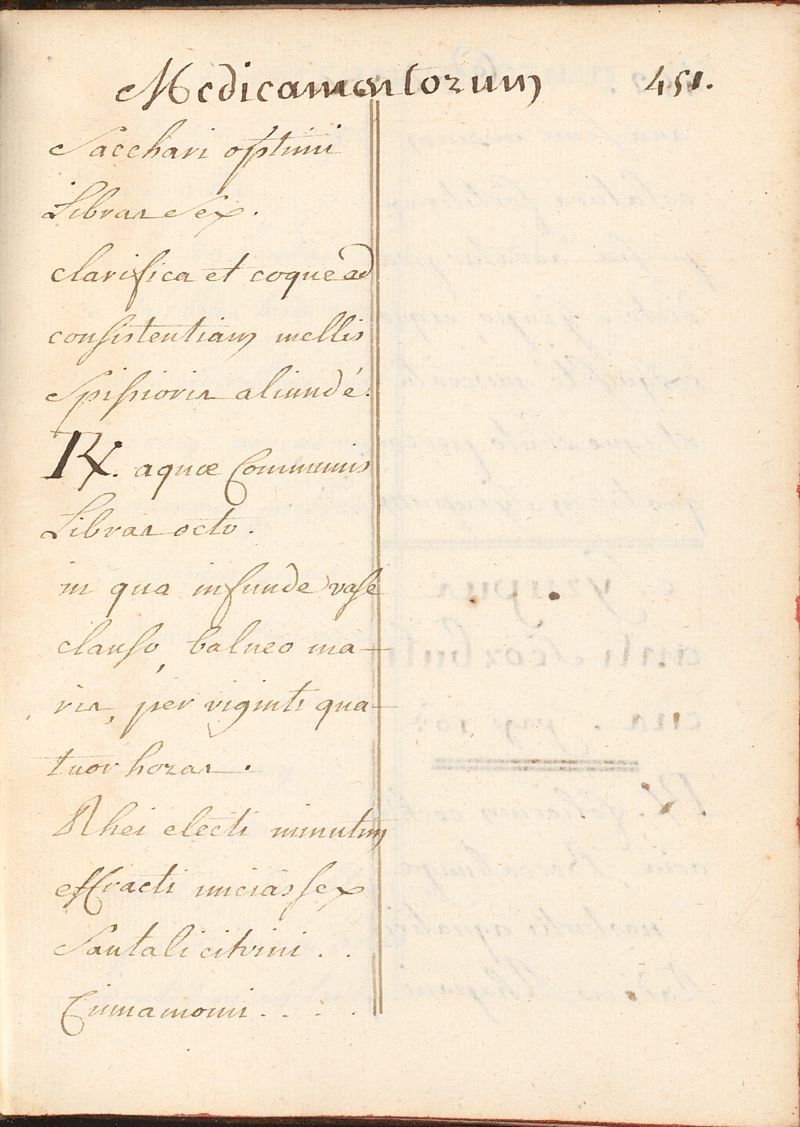 Medicamentorum 451.
Sacchari optimi
Libras Sex.
clarifica et coque ad
consistentiam mellis
Spissioris aliundé.
℞. aquæ Communis
Libras octo.
in qua infunde vase
clauso, balneo ma-
ris, per viginti qua-
tuor horas.
Rhei electi minutim
effracti uncias sex
Santali citrini . .
Cinnamomi . . . .